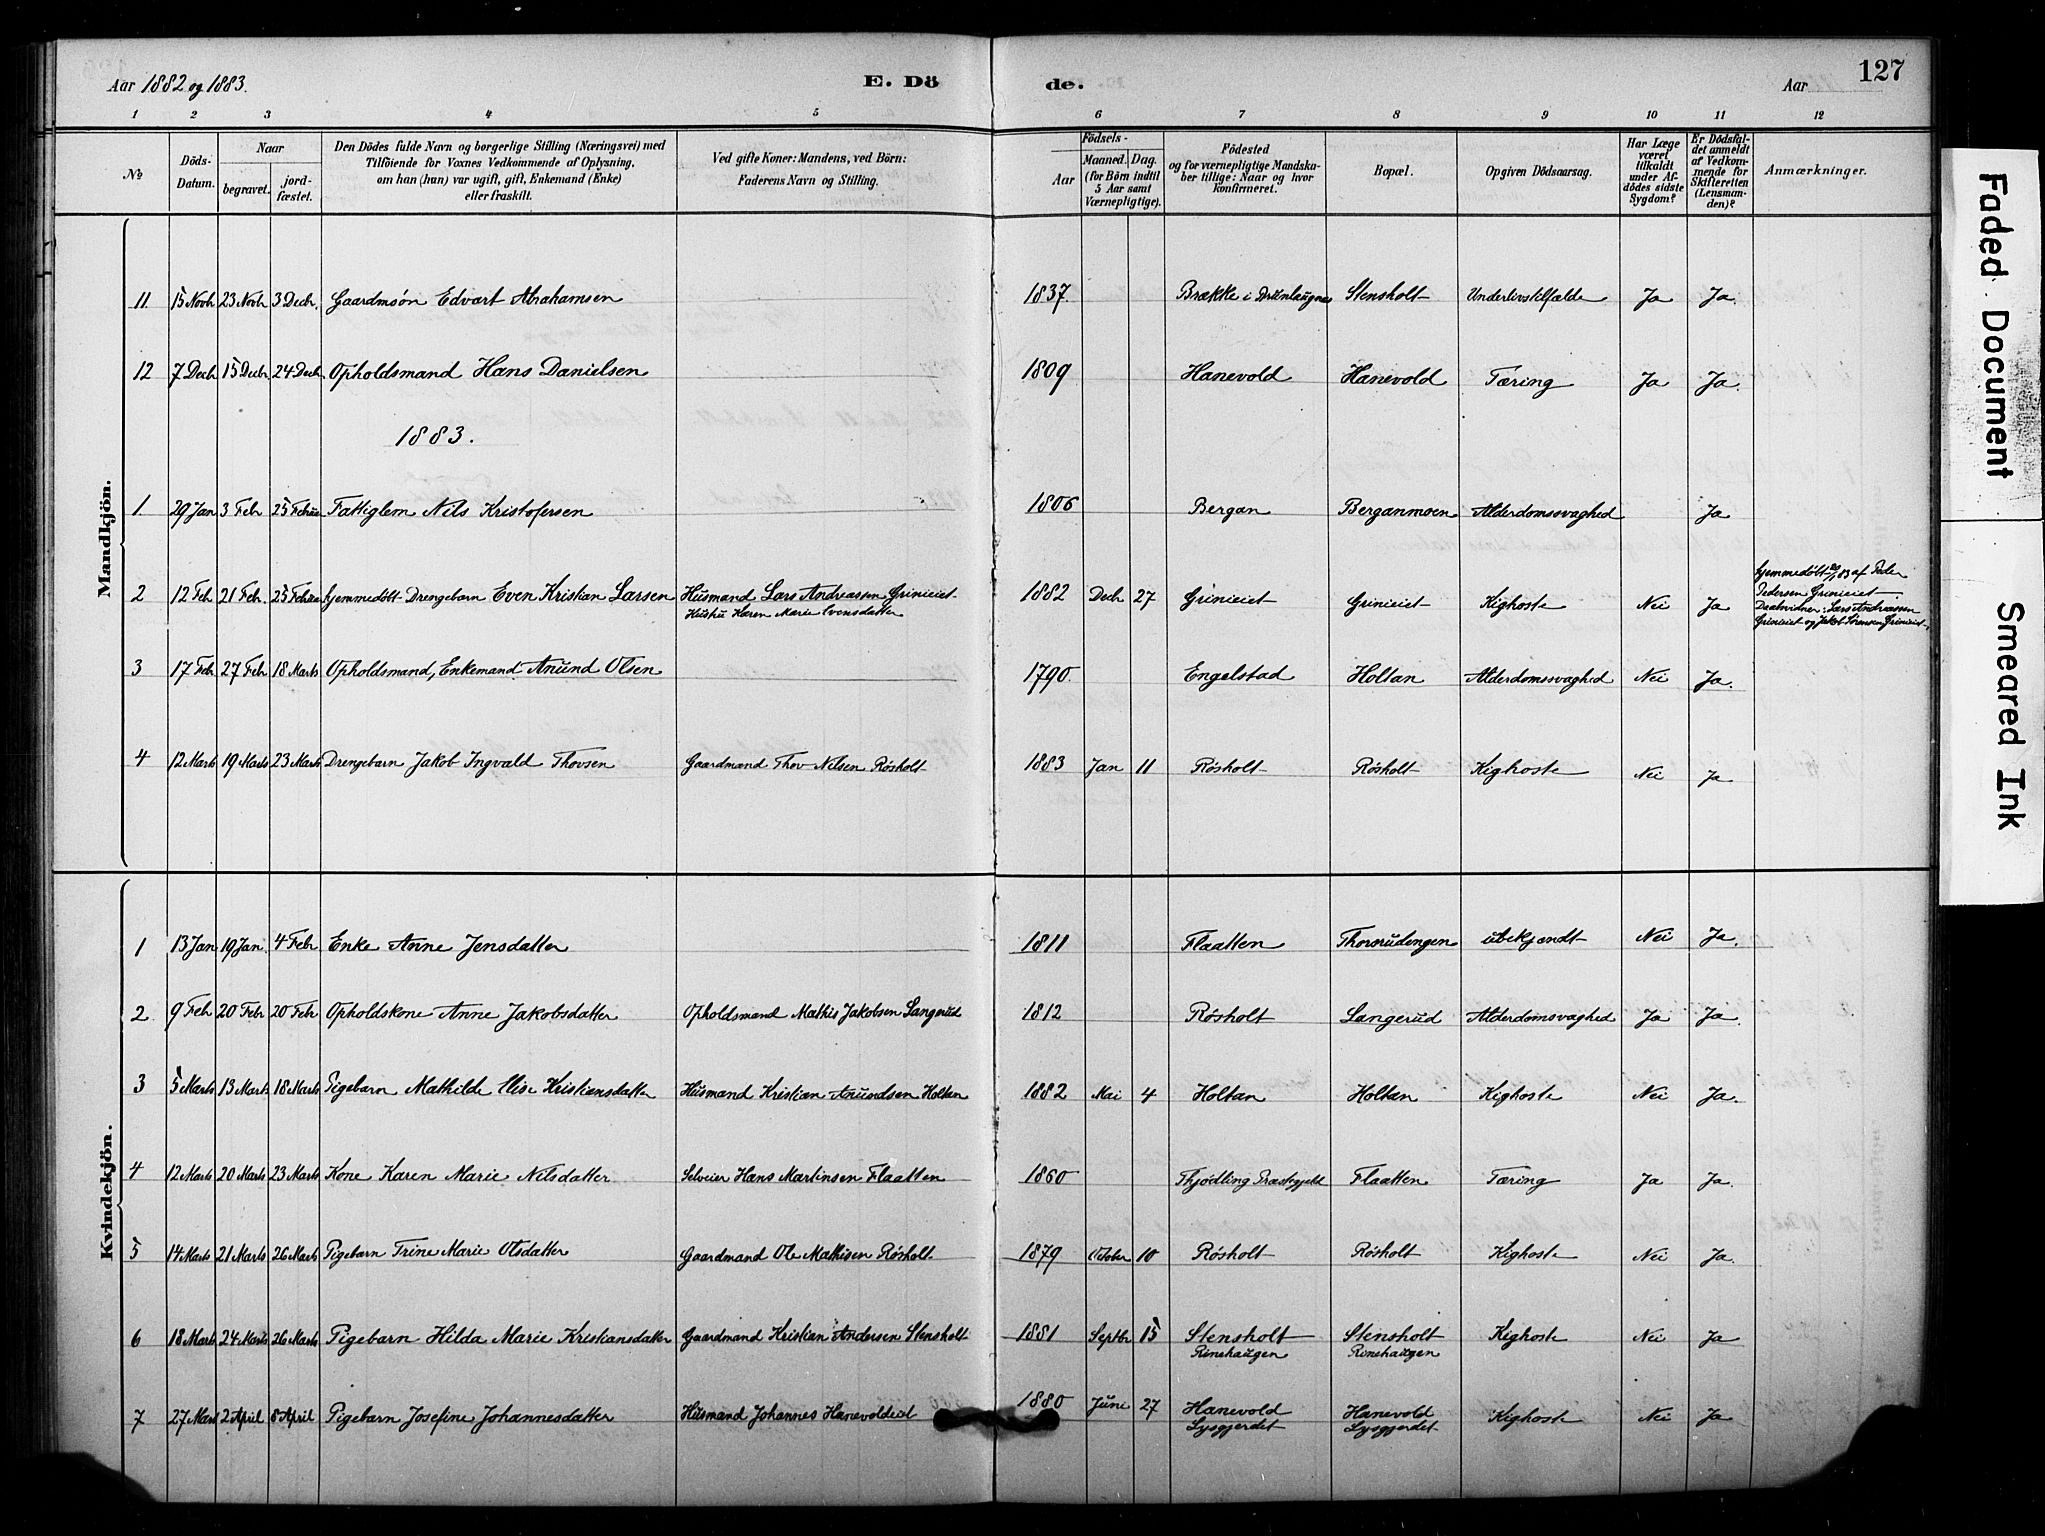 Aar 1882 og 1883.
E. Dö
de.
Aar
127
1 2 3 4 5 6 7 8 9 10 11 12
№
Döds-Datum.
Naar
begravet.
jord-fæstet.
Den Dödes fulde Navn og borgerlige Stilling (Næringsvei) med
Tilföiende for Voxnes Vedkommende af Oplysning,
om han (hun) var ugift, gift, Enkemand (Enke)
eller fraskilt.
Ved gifte Koner: Mandens, ved Börn:
Faderens Navn og Stilling.
Födsels-
Aar
Maaned. Dag.
(for Börn indtil
5 Aar samt
Værnepligtige).
Födested
og for værnepligtige Mandska-
ber tillige: Naar og hvor
konfirmeret.
Bopæl.
Opgiven Dödsaarsag.
Har Læge
været
tilkaldt
under Af-
dödes sidste
Sygdom?
Er Dödsfal-
det anmeldt
af Vedkom-
mende for
Skifteretten
(Lensman-
den)?
Anmærkninger.
Mandkjön.
11 15 Novbr 23 Novbr 3 Decbr. Gaardmsøn Edvart Abrahamsen 1837. Brække i Brunlaugnes Stensholt Underlivstilfælde Ja Ja.
12 7 Decbr 15 Decbr. 24 Decb. Opholdsmand Hans Danielsen 1809 Hanevold Hanevold Tæring Ja Ja.
1883.
1. 29 Jan 3 Febr 25 Februar Fattiglem Nils Kristofersen 1806 Bergan Berganmoen Alderdomssvaghed Ja
2 12 Feb 21 Feb. 25 Februar hjemmedøbt Drengebarn Even Kristian Larsen Husmand Lars Andreassen Grinieiet 1882 Decbr 27 Grinieiet Grinieiet Kighoste Nei Ja
Hustru Karen Marie Evensdatter
hjemmedøbt 83 af Peder
Pedersen Grinieiet
Daabvidner: Lars Andreassen
Grinieiet og Jakob Sørensen Grinieiet.
3 17 Febr 27 Febr 18 Marts Opholdsmand, Enkemand Anund Olsen 1790. Engelstad Holtan Alderdomssvaghed Nei Ja.
4 12 Marts 19 Marts 23 Marts Drengebarn Jakob Ingvald Thovsen Gaardmand Thov Nilsen Røsholt 1883 Jan 11 Røsholt Røsholt Kighoste Nei Ja
Kvindekjön.
1 13 Jan 19 Jan. 4 Febr Enke Anne Jensdatter 1811 Flaatten Thorsrudengen ubekjendt Nei Ja.
2 9 Febr 20 Febr 20 Febr Opholdskone Anne Jakobsdatter Opholdsmand Mathis Jakobsen Langerud 1812 Røsholt Langerud Alderdomsvaghed Ja Ja.
3 5 Marts 13 Marts 18 Marts Pigebarn Mathilde Elise Kristiansdatter Husmand Kristian Anundsen Holtan 1882 Mai 4 Holtan Holtan Kighoste Nei Ja.
4 12 Marts 20 Marts 23 Marts Kone Karen Marie Nilsdatter Selveier Hans Martinsen Flaatten 1860 Thjødling Præstegjeld Flaatten Tæring Ja Ja.
5 14 Marts 21 Marts 26 Marts Pigebarn Trine Marie Olsdatter Gaardmand Ole Mathisen Røsholt 1879 October 10 Røsholt Røsholt Kighoste Nei Ja.
6 18 Marts 24 Marts 26 Marts Pigebarn Hilda Marie Kristiansdatter Gaardmand Kristian Andersen Stensholt 1881 Septbr 15 Stensholt Stensholt Kighoste Nei Ja
Rønehaugen Rønehaugen
7 27 Mars 2 April 8 April Pigebarn Josefine Johannesdatter Husmand Johannes Hanevoldeiet 1880 Juni 27 Hanevold Hanevold Kighoste Nei Ja
Lysgjerdet Lysgjerdet
Faded Document
Smeared Ink